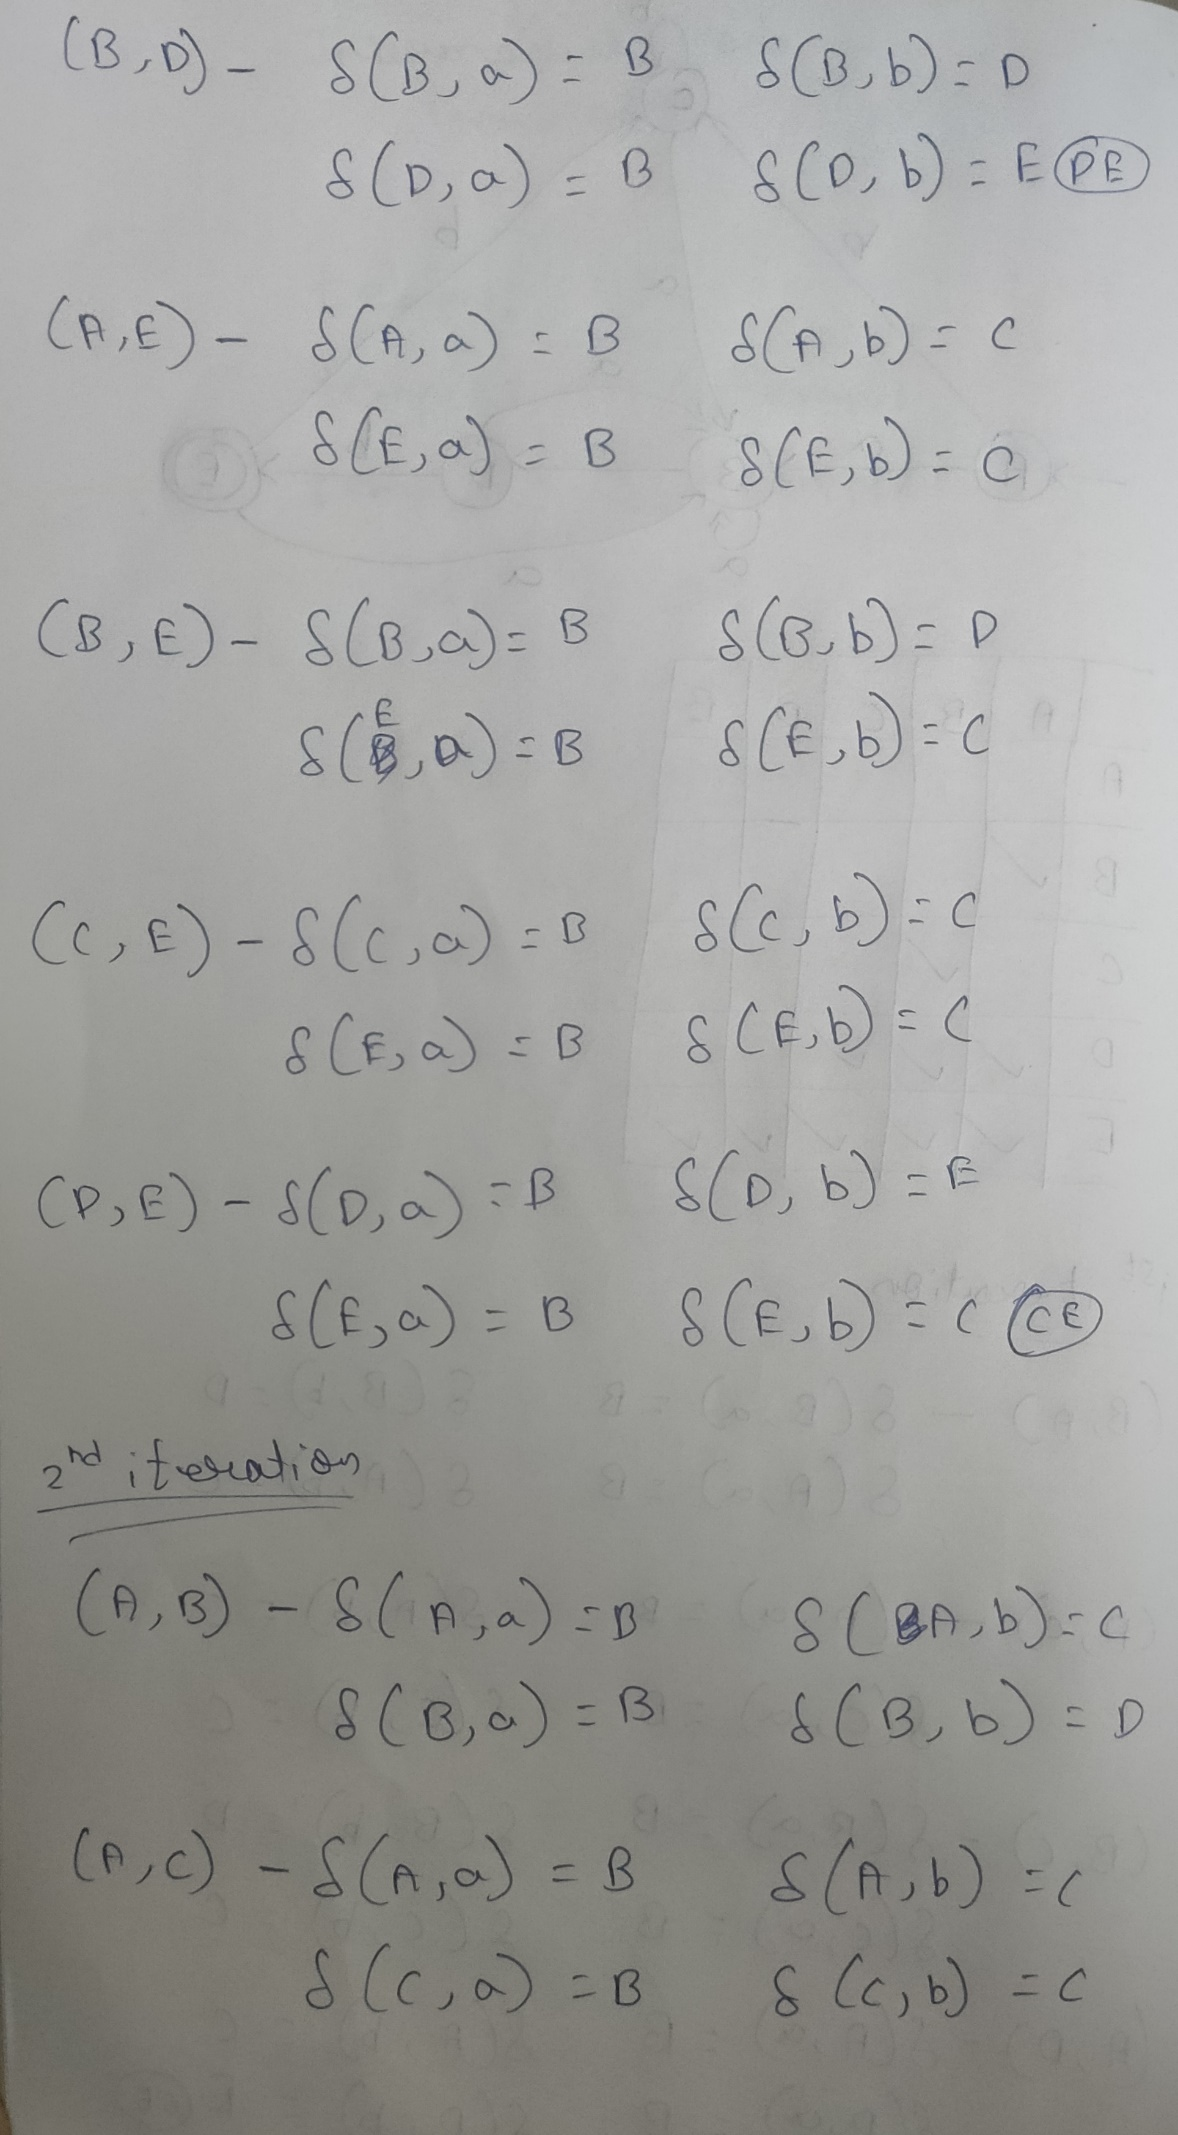 (B,D) - δ(B,a) = B δ(B,b) = D
δ(D,a) = B δ(D,b) = E DE
(A,E) - δ(A,a) = B δ(A,b) = C
δ(E,a) = B δ(E,b) = C
(B,E) - δ(B,a) = B δ(B,b) = D
δ(E,a) = B δ(E,b) = C
(C,E) - δ(C,a) = B δ(C,b) = C
δ(E,a) = B δ(E,b) = C
(D,E) - δ(D,a) = B δ(D,b) = E
δ(E,a) = B δ(E,b) = C CE
2nd iteration
(A,B) - δ(A,a) = B δ(A,b) = C
δ(B,a) = B δ(B,b) = D
(A,C) - δ(A,a) = B δ(A,b) = C
δ(C,a) = B δ(C,b) = C